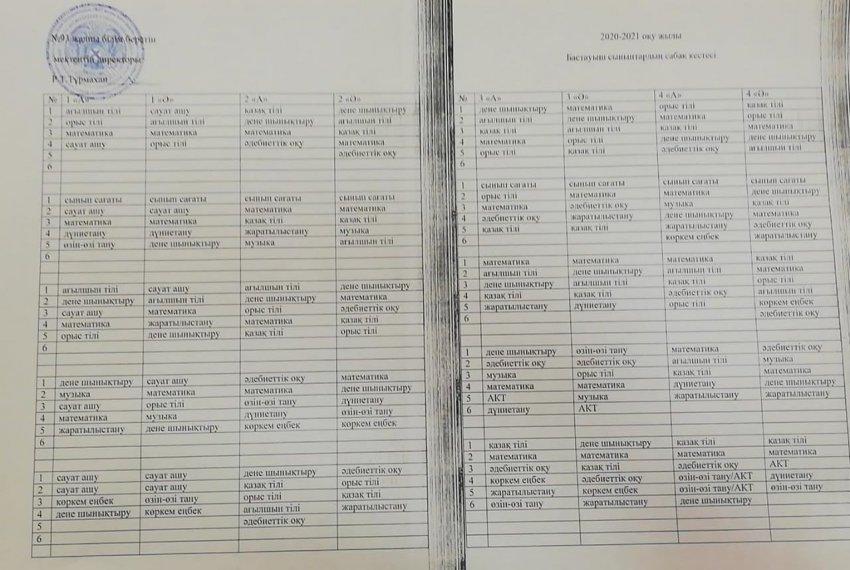 №91 жалпы білім беретін
мектептің директоры
Р.Т.Тұрмахан
№ 1 «А» 1 «Ә» 2 «А» 2 «Ә»
1 ағылшын тілі сауат ашу қазақ тілі дене шынықтыру
2 орыс тілі ағылшын тілі дене шынықтыру ағылшын тілі
3 математика математика математика қазақ тілі
4 сауат ашу орыс тілі әдебиеттік оқу математика
5 әдебиеттік оқу
6
1 сынып сағаты сынып сағаты сынып сағаты сынып сағаты
2 сауат ашу сауат ашу математика математика
3 математика математика қазақ тілі қазақ тілі
4 дүниетану дүниетану жаратылыстану музыка
5 өзін-өзі тану дене шынықтыру музыка ағылшын тілі
6
1 ағылшын тілі сауат ашу ағылшын тілі дене шынықтыру
2 дене шынықтыру ағылшын тілі дене шынықтыру математика
3 сауат ашу математика орыс тілі әдебиеттік оқу
4 математика жаратылыстану математика қазақ тілі
5 орыс тілі дене шынықтыру қазақ тілі орыс тілі
6
1 дене шынықтыру сауат ашу әдебиеттік оқу математика
2 музыка математика математика дене шынықтыру
3 сауат ашу орыс тілі өзін-өзі тану дүниетану
4 математика музыка дүниетану өзін-өзі тану
5 жаратылыстану дене шынықтыру көркем еңбек көркем еңбек
6
1 сауат ашу сауат ашу дене шынықтыру әдебиеттік оқу
2 сауат ашу сауат ашу қазақ тілі орыс тілі
3 көркем еңбек өзін-өзі тану орыс тілі қазақ тілі
4 дене шынықтыру көркем еңбек ағылшын тілі жаратылыстану
5 әдебиеттік оқу
6
2020-2021 оқу жылы
Бастауыш сыныптардың сабақ кестесі
№ 3 «А» 3 «Ә» 4 «А» 4 «Ә»
1 дене шынықтыру математика орыс тілі қазақ тілі
2 ағылшын тілі дене шынықтыру математика орыс тілі
3 қазақ тілі ағылшын тілі қазақ тілі математика
4 математика орыс тілі дене шынықтыру дене шынықтыру
5 орыс тілі қазақ тілі әдебиеттік оқу ағылшын тілі
6
1 сынып сағаты сынып сағаты сынып сағаты сынып сағаты
2 орыс тілі математика математика дене шынықтыру
3 математика әдебиеттік оқу музыка қазақ тілі
4 әдебиеттік оқу жаратылыстану дене шынықтыру математика
5 қазақ тілі қазақ тілі жаратылыстану әдебиеттік оқу
6 көркем еңбек жаратылыстану
1 математика математика математика қазақ тілі
2 ағылшын тілі дене шынықтыру ағылшын тілі математика
3 дене шынықтыру ағылшын тілі қазақ тілі орыс тілі
4 қазақ тілі қазақ тілі әдебиеттік оқу ағылшын тілі
5 жаратылыстану дүниетану орыс тілі көркем еңбек
6 әдебиеттік оқу
1 дене шынықтыру өзін-өзі тану математика әдебиеттік оқу
2 әдебиеттік оқу әдебиеттік оқу ағылшын тілі музыка
3 музыка орыс тілі қазақ тілі математика
4 математика математика дүниетану дене шынықтыру
5 АКТ музыка жаратылыстану жаратылыстану
6 дүниетану АКТ
1 қазақ тілі дене шынықтыру қазақ тілі қазақ тілі
2 математика математика математика математика
3 әдебиеттік оқу қазақ тілі әдебиеттік оқу АКТ
4 көркем еңбек әдебиеттік оқу өзін-өзі тану/АКТ дүниетану
5 жаратылыстану көркем еңбек өзін-өзі тану/АКТ өзін-өзі тану
6 өзін-өзі тану жаратылыстану дене шынықтыру